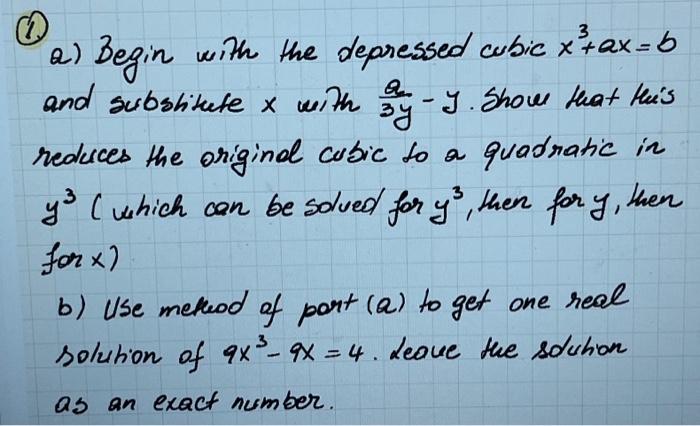 1.
a) Begin with the depressed cubic x³+ax=b
and substitute x with a/3y - y. Show that this
reduces the original cubic to a quadratic in
y³ (which can be solved for y³, then for y, then
for x)
b) Use method of part (a) to get one real
solution of 9x³-9x=4. Leave the solution
as an exact number.